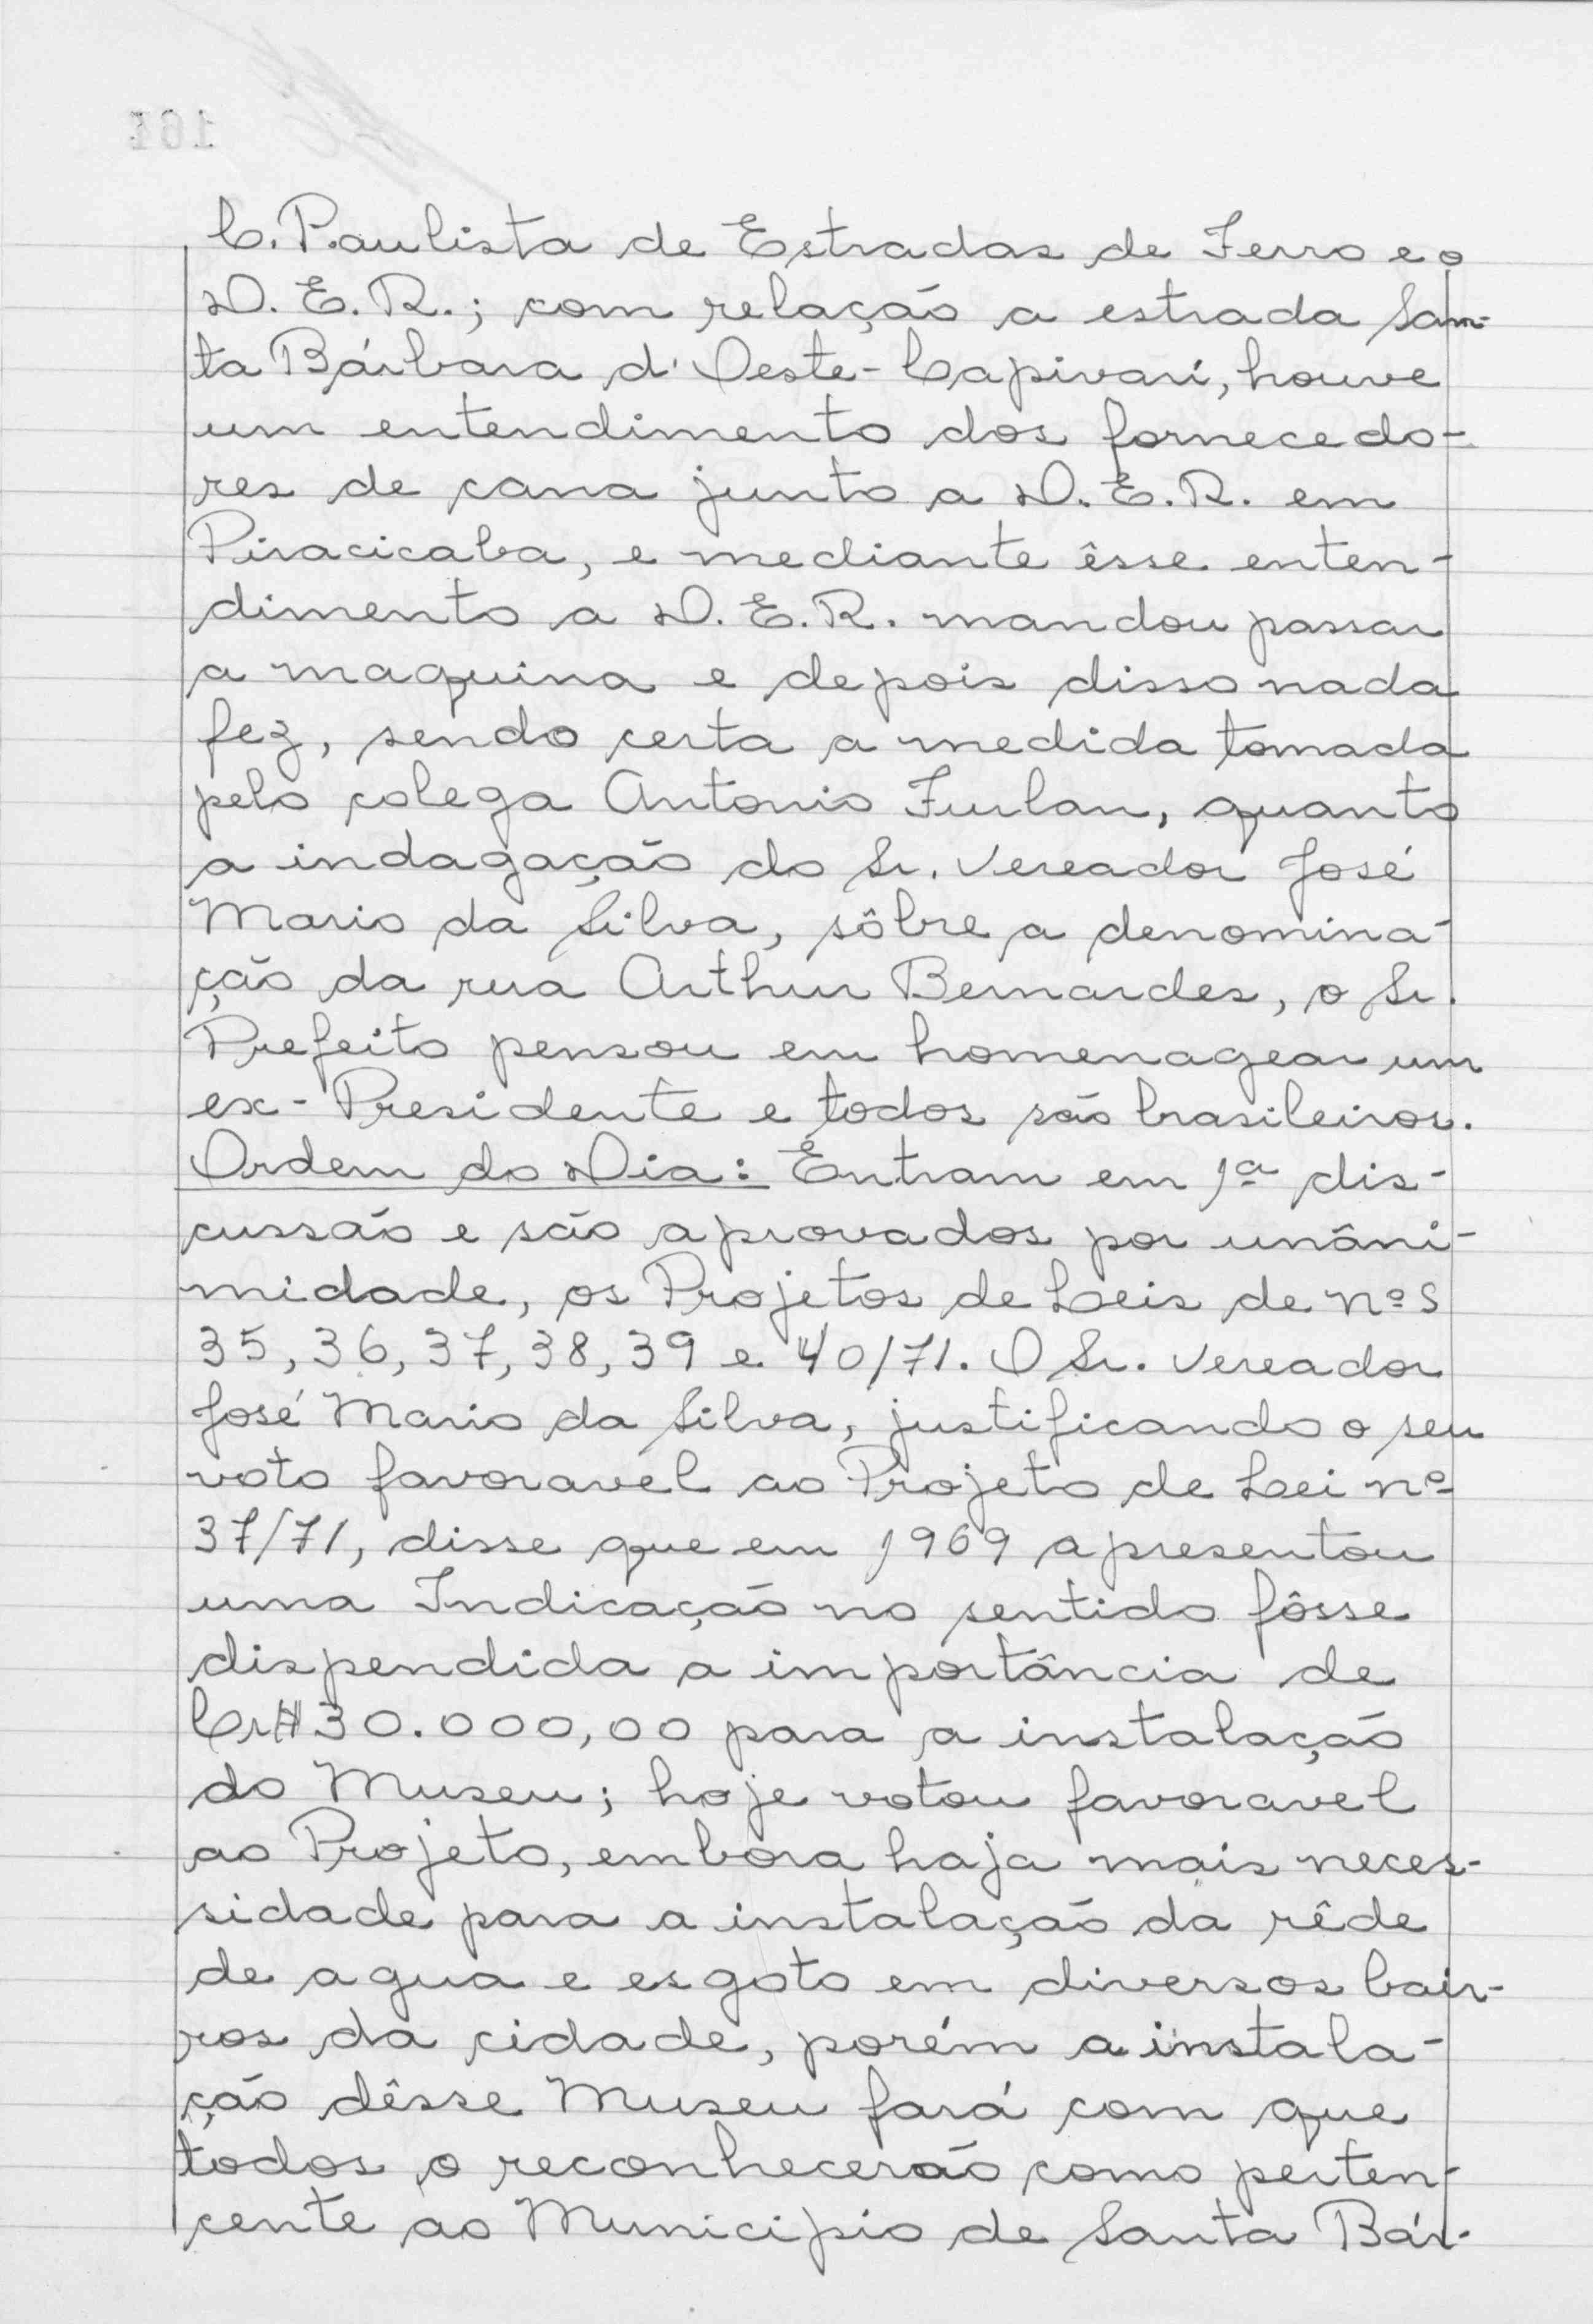 C. Paulista de Estradas de Ferro e o
D. E. R.; com relação a estrada San-
ta Bárbara d'Oeste - Capivari, houve
um entendimento dos fornecedo-
res de cana junto a D. E. R. em
Piracicaba, e mediante êsse enten-
dimento a D. E. R. mandou passar
a maquina e depois disso nada
fez, sendo certa a medida tomada
pelo colega Antonio Furlan, quanto
a indagação do Sr. Vereador José
Mario da Silva, sôbre a denomina-
ção da rua Arthur Bernardes, o Sr.
Prefeito pensou em homenagear um
ex-Presidente e todos são brasileiros.
Ordem do Dia: Entram em 1ª dis-
cussão e são aprovados por unâni-
midade, os Projetos de Leis de nºs
35, 36, 37, 38, 39 e 40/71. O Sr. Vereador
José Mario da Silva, justificando o seu
voto favoravel ao Projeto de Lei nº
37/71, disse que em 1969 apresentou
uma Indicação no sentido fôsse
dispendida a importância de
Cr$ 30.000,00 para a instalação
do Museu; hoje votou favoravel
ao Projeto, embora haja mais neces-
sidade para a instalação da rêde
de agua e esgoto em diversos bair-
ros da cidade, porém a instala-
ção dêsse Museu fará com que
todos o reconhecerão como perten-
cente ao Municipio de Santa Bár-